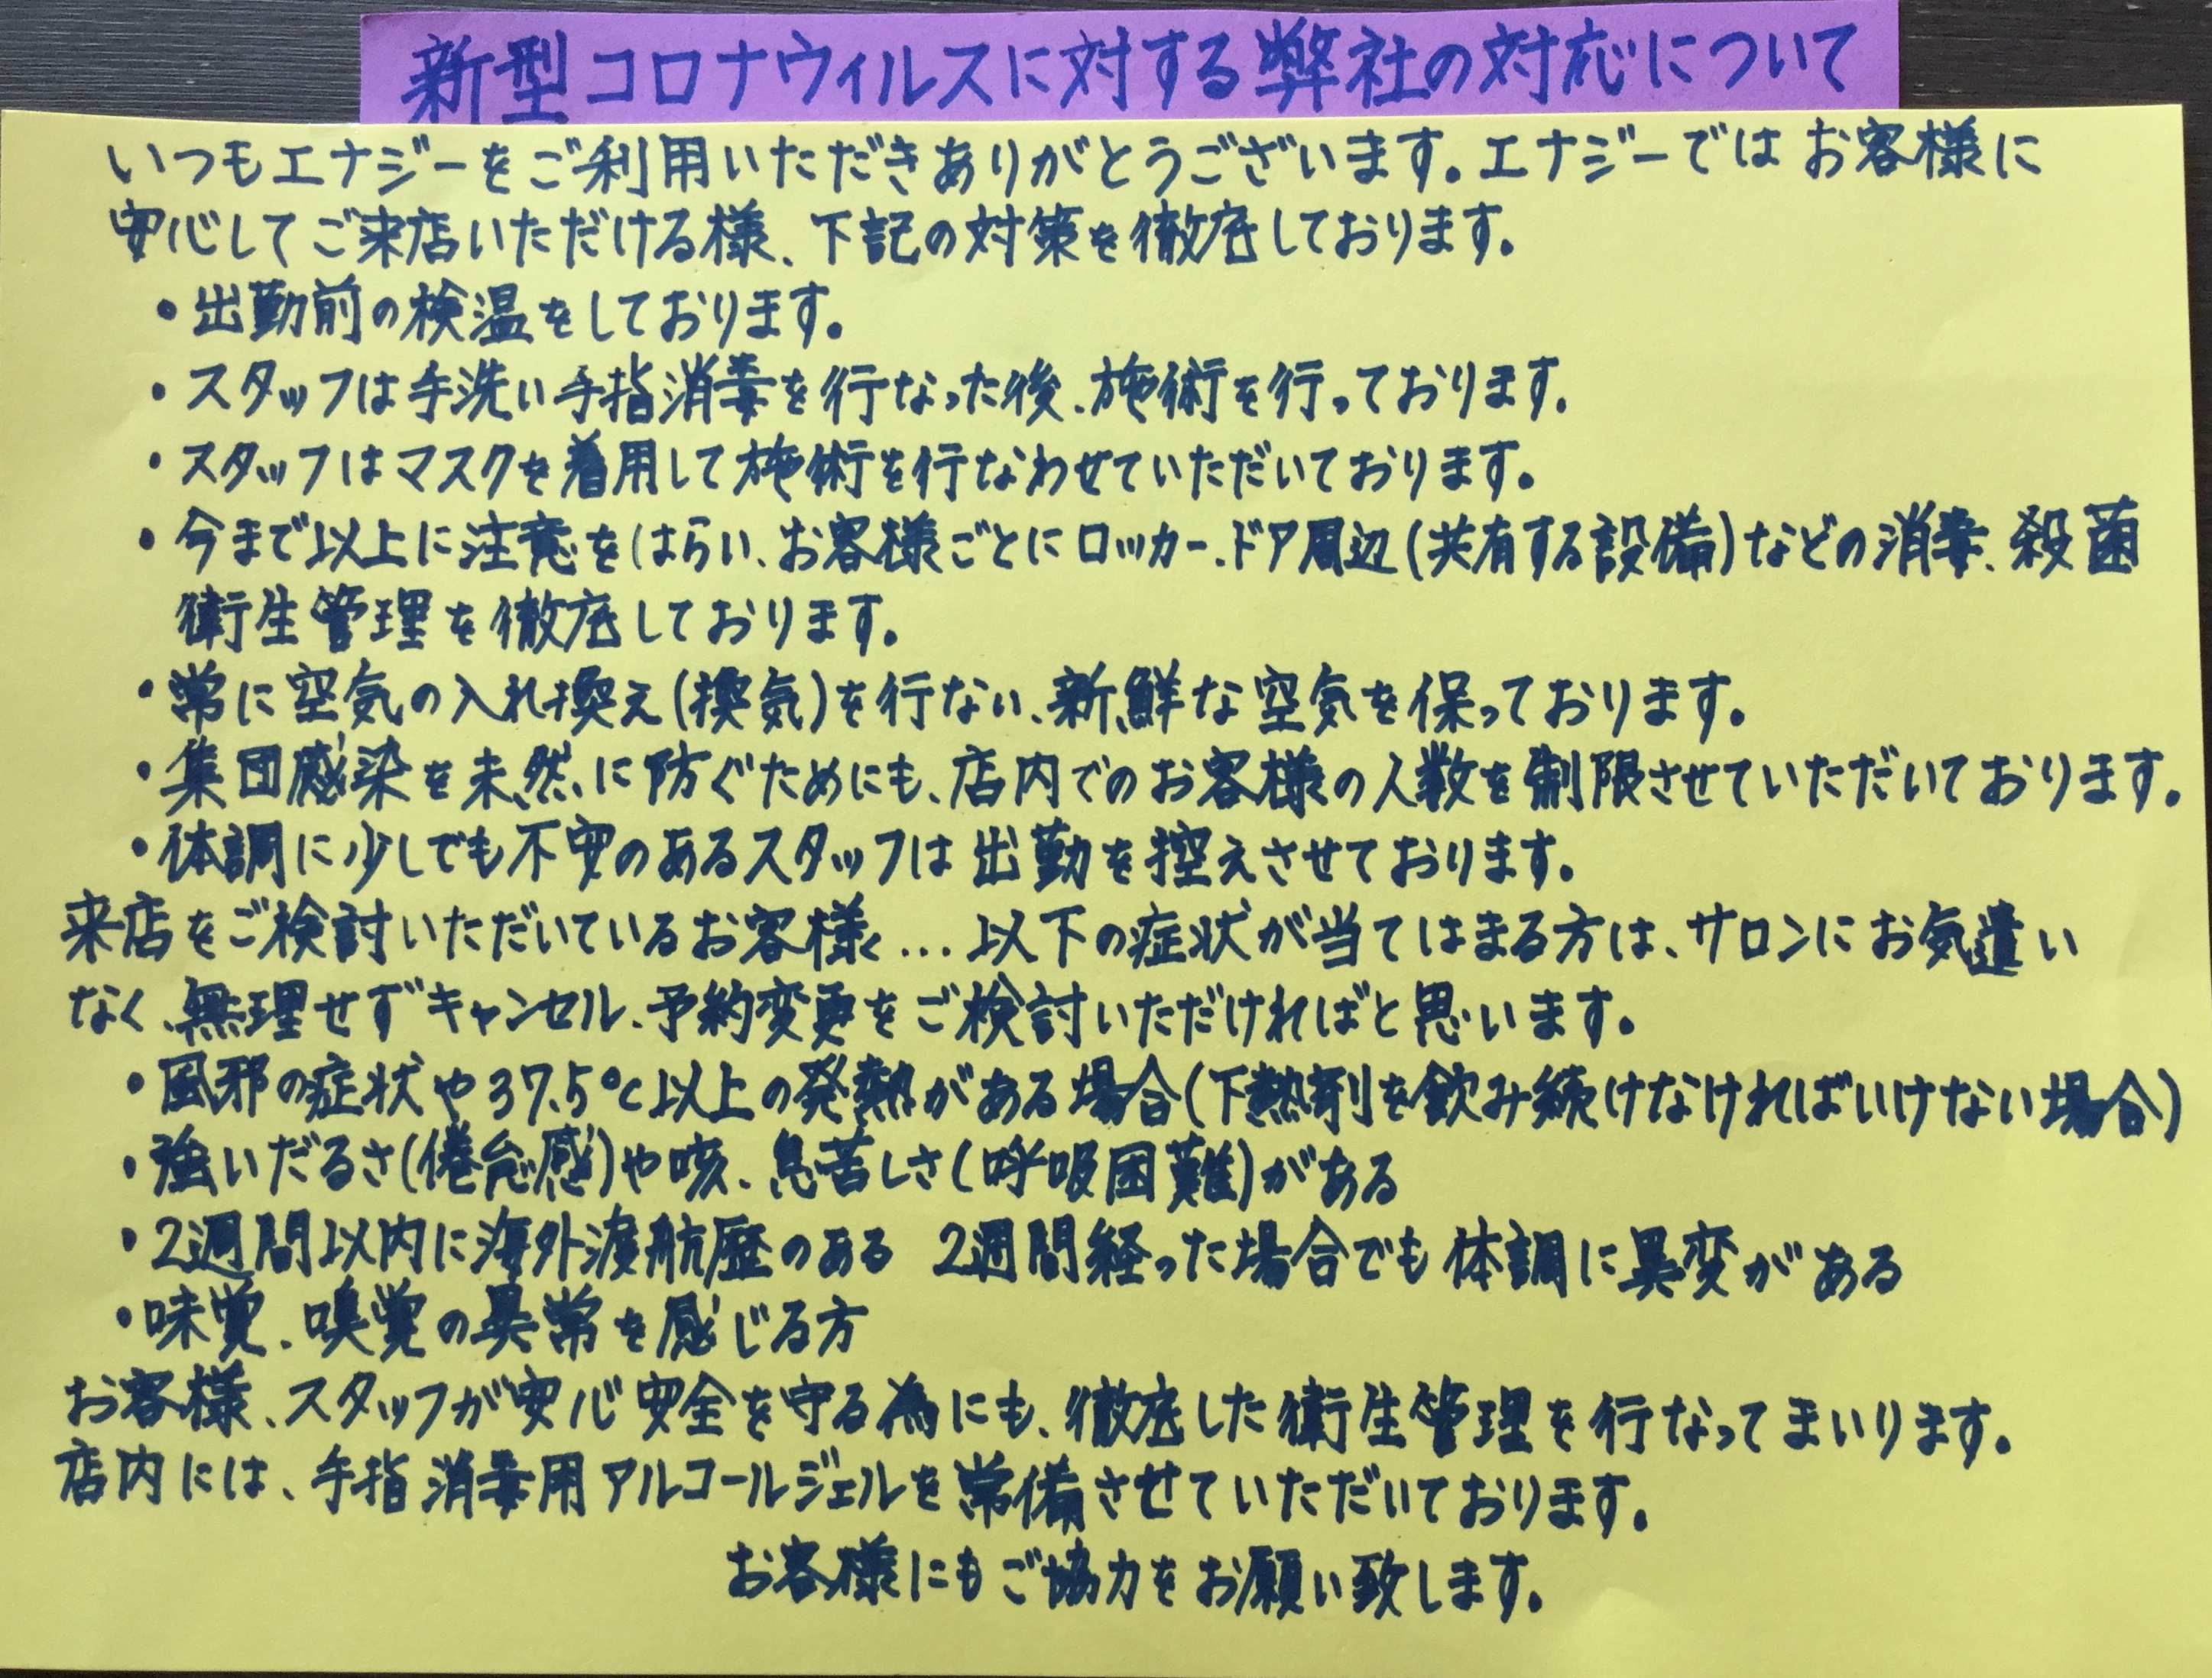 新型コロナウィルスに対する弊社の対応について
いつもエナジーをご利用いただきありがとうございます。エナジーではお客様に
安心してご来店いただける様、下記の対策を徹底しております。
・出勤前の検温をしております。
・スタッフは手洗い手指消毒を行なった後、施術を行っております。
・スタッフはマスクを着用して施術を行なわせていただいております。
・今まで以上に注意をはらい、お客様ごとにロッカー、ドア周辺(共有する設備)などの消毒、殺菌
衛生管理を徹底しております。
・常に空気の入れ換え(換気)を行ない、新鮮な空気を保っております。
・集団感染を未然に防ぐためにも、店内でのお客様の人数を制限させていただいております。
・体調に少しでも不安のあるスタッフは出勤を控えさせております。
来店をご検討いただいているお客様く...以下の症状が当てはまる方は、サロンにお気遣い
なく、無理せずキャンセル、予約変更をご検討いただければと思います。
・風邪の症状や37.5℃以上の発熱がある場合(下熱剤を飲み続けなければいけない場合)
・強いだるさ(倦怠感)や咳、息苦しさ(呼吸困難)がある
・2週間以内に海外渡航歴のある 2週間経った場合でも体調に異変がある
・味覚、嗅覚の異常を感じる方
お客様、スタッフが安心安全を守る為にも、徹底した衛生管理を行なってまいります。
店内には、手指消毒用アルコールジェルを常備させていただいております。
お客様にもご協力をお願い致します。